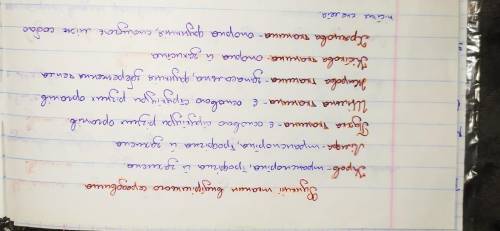 Функції тканин внутрішнього середовища
Кров - транспортна, трофічна й захисна
Лімфа - транспортна, трофічна й захисна
Пухка тканина - є основою структури різних органів
Щільна тканина - є основою структури різних органів
Жирова тканина - запасальна, функція збереження тепла
Кісткова тканина - опорна й захисна
Хрящова тканина - опорна функція, сполучає між собою